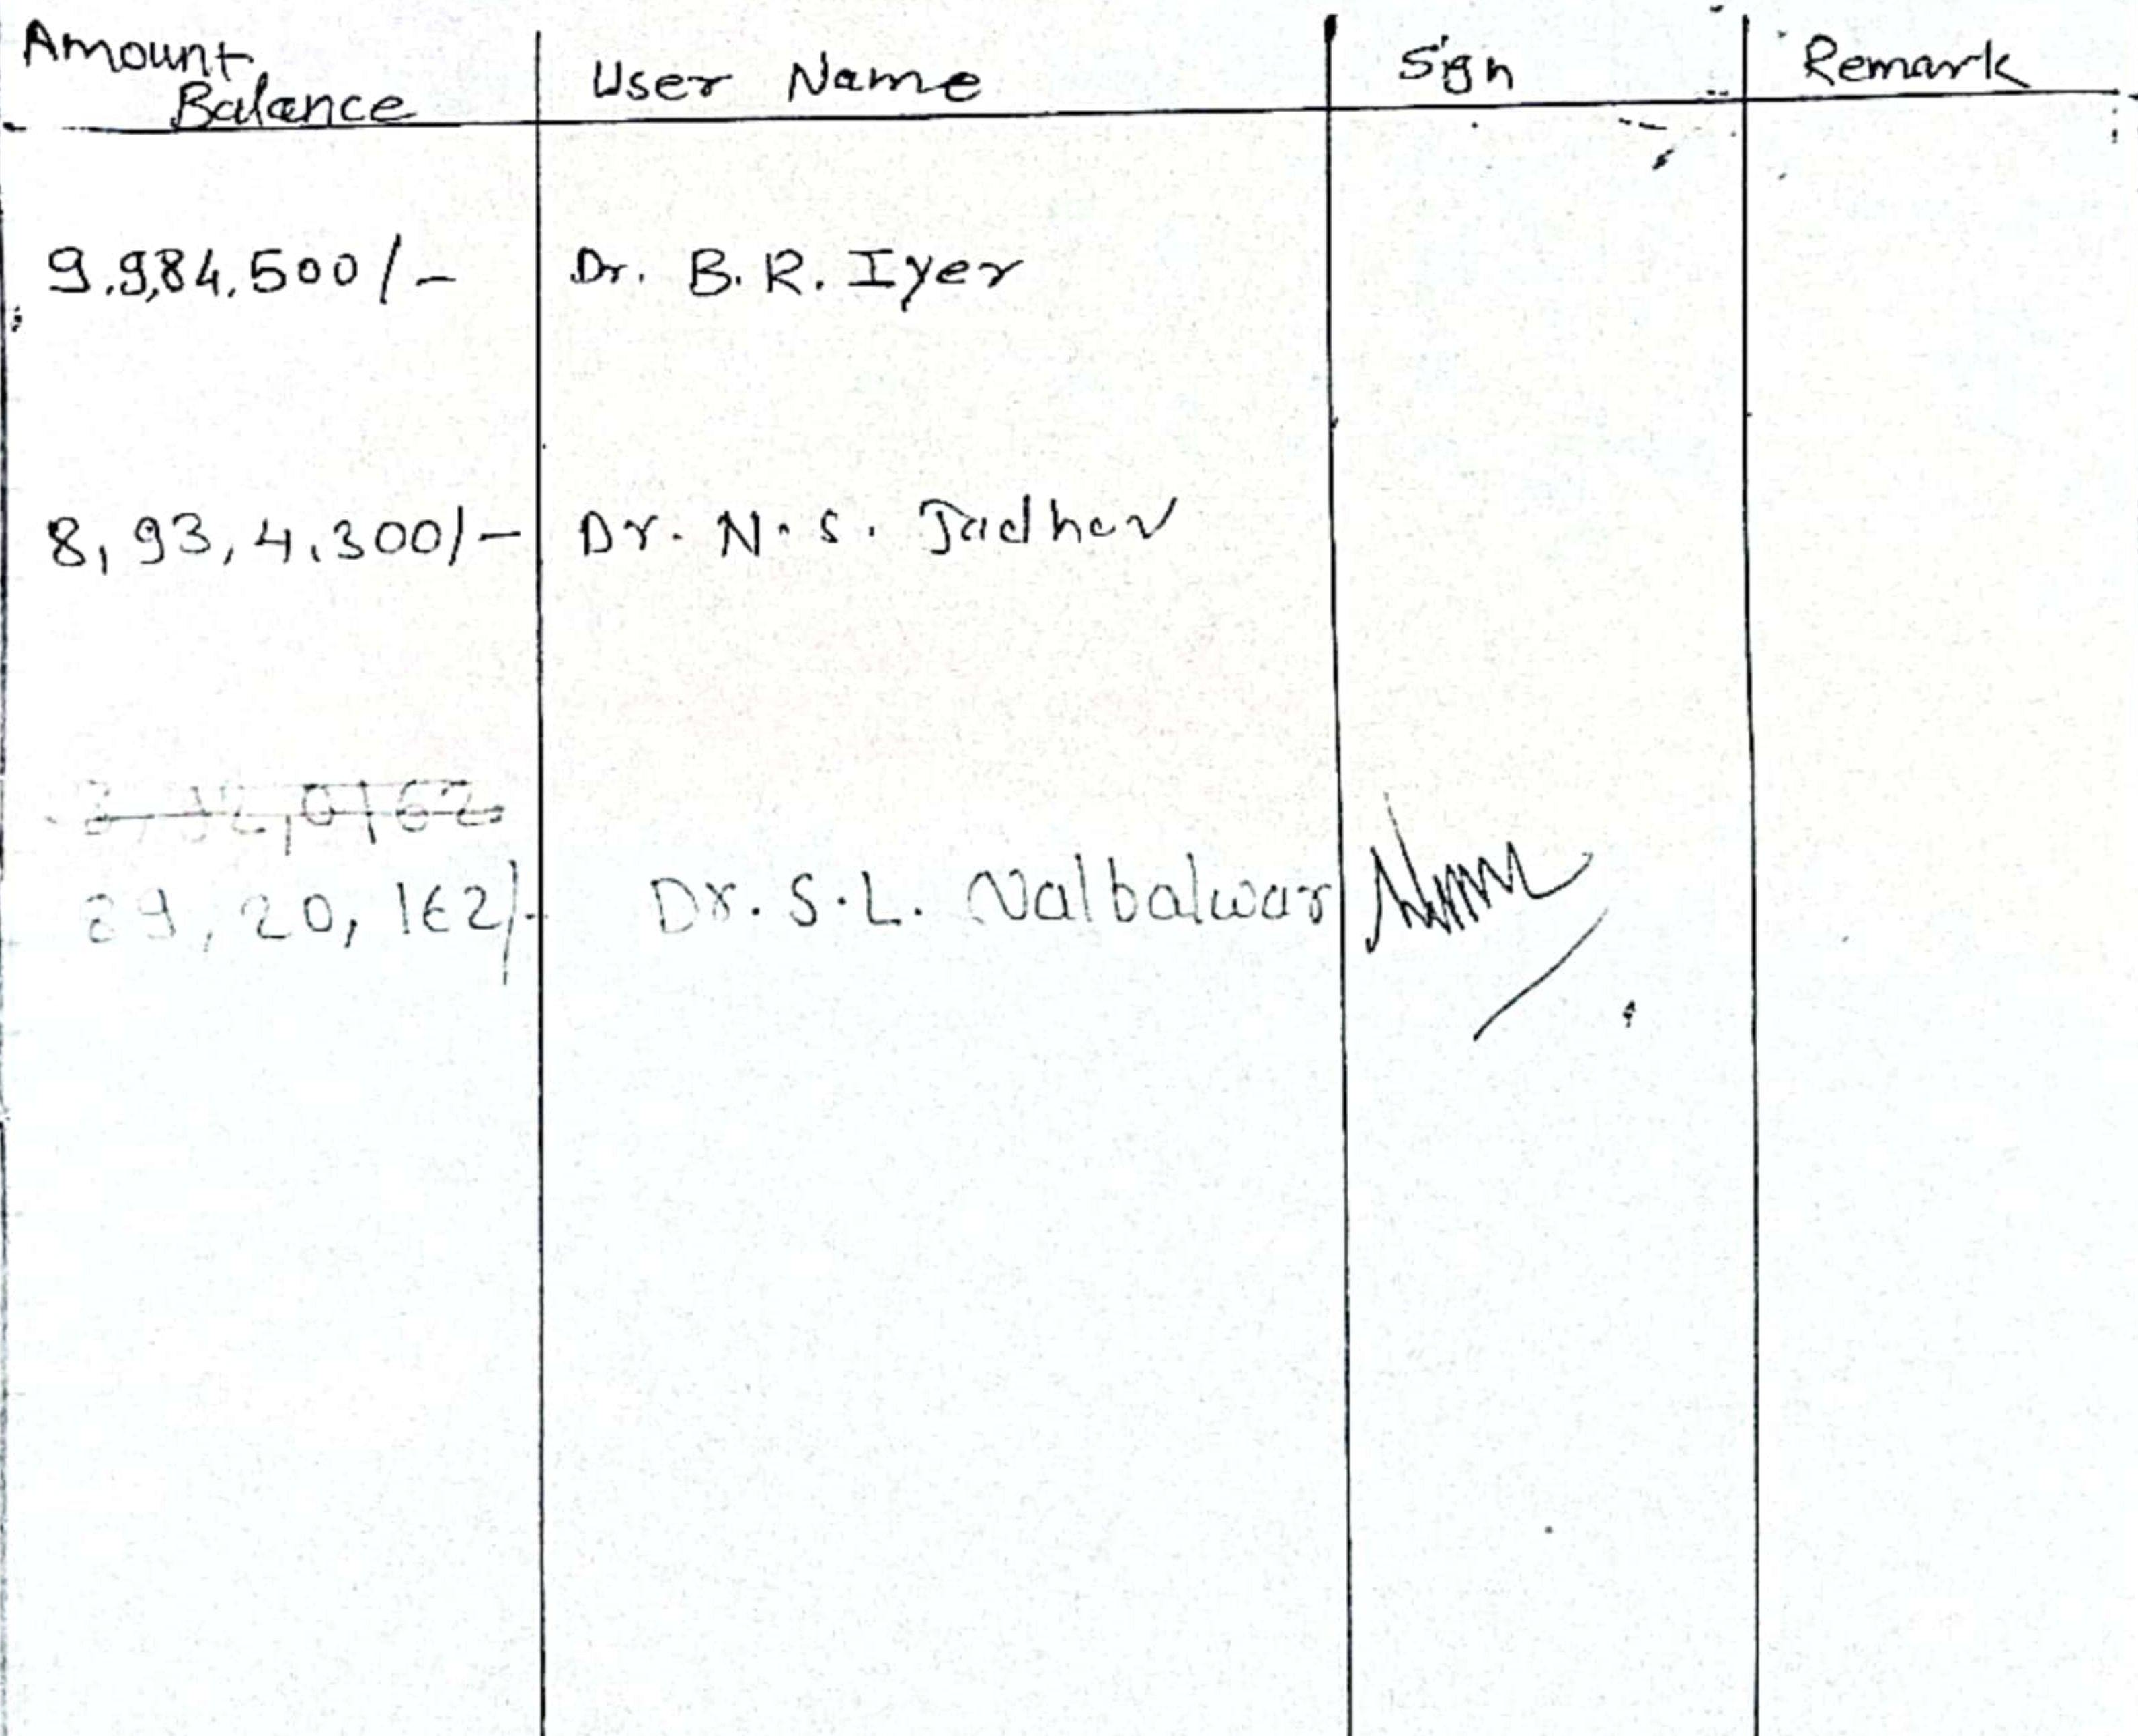 Amount
Balance
User Name
Sign
Remark
9.9,84.500/-
Dr. B. R. Iyer
8,93,4,300/-
Dr. N. S. Jadhav
89,20,162/-
Dr. S.L. Nalbalwar